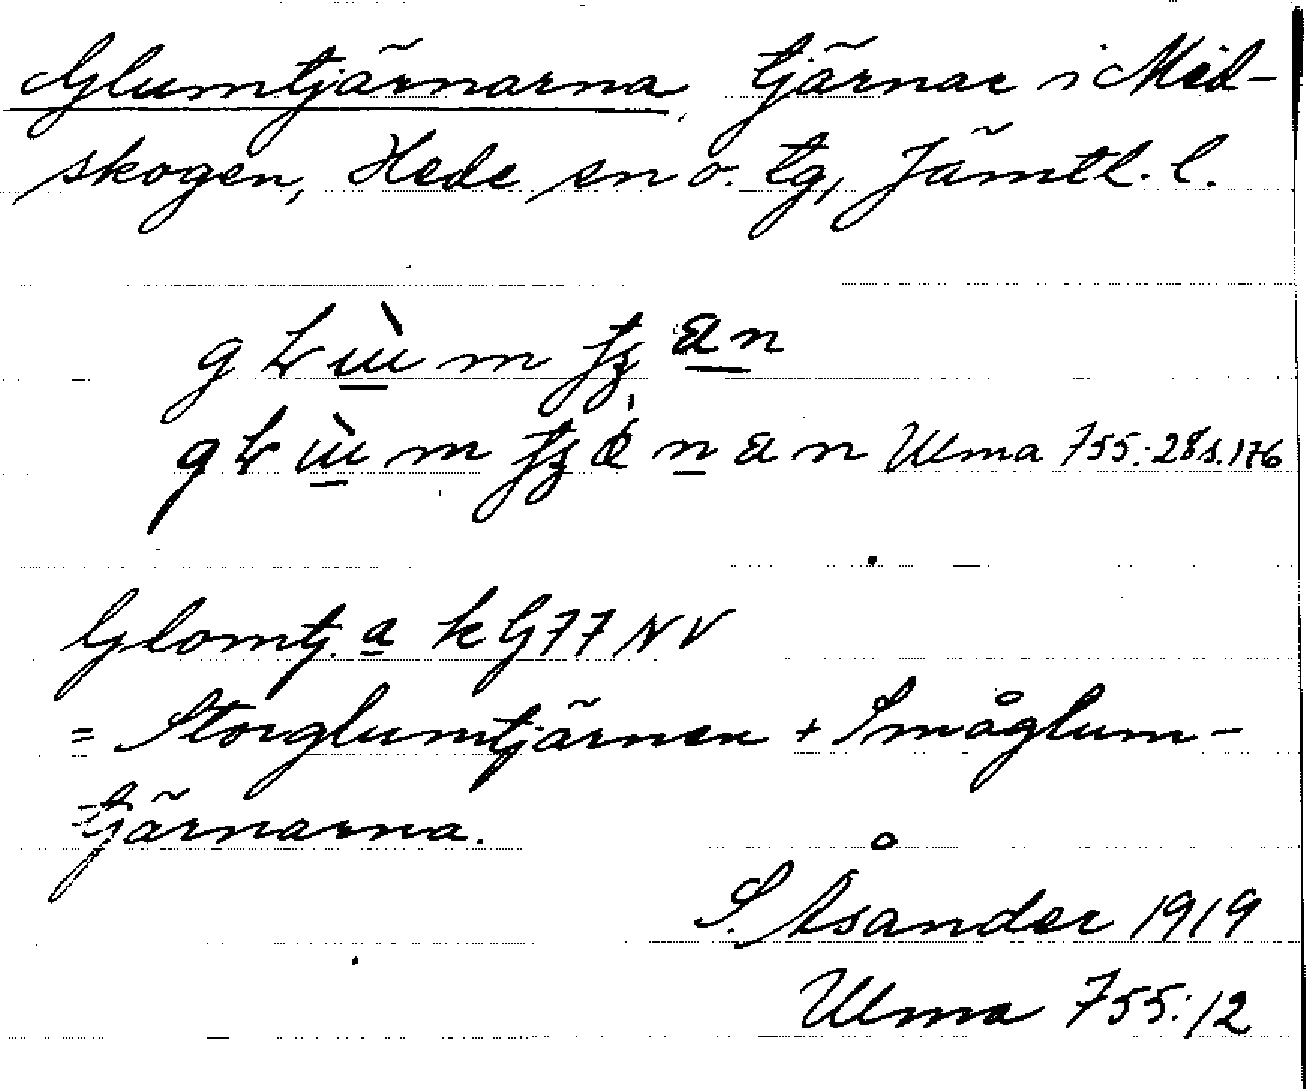 Glumtjärnarna, tjärnar i Mid-
skogen, Hede sn o. tg, Jämtl. l.
Ulma 755:28 s. 176
Glomtj. a k G77 NV
= Storglumtjärnen + Småglum-
tjärnarna.
S. Åsander 1919
Ulma 755:12